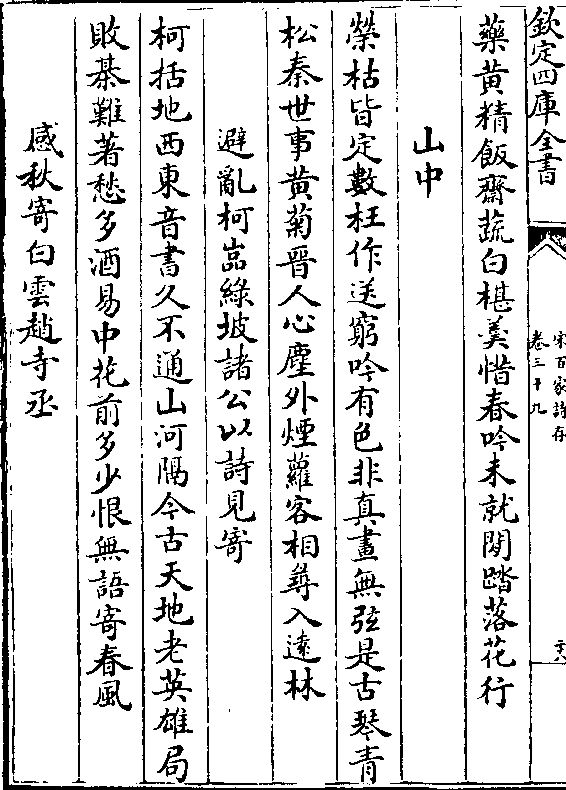 欽定四庫全書
宋百家詩存
卷三十九
六
藥黄精飯齋蔬白椹羮惜春吟未就閒踏落花行
山中
榮枯皆定數枉作送窮吟有色非真畫無弦是古琴青
松秦世事黄菊晉人心塵外煙蘿客相尋入逺林
避亂柯嵓緑坡諸公以詩見寄
柯括地西東音書久不通山河隔今古天地老英雄局
敗棊難著愁多酒易中花前多少恨無語寄春風
感秋寄白雲趙寺丞